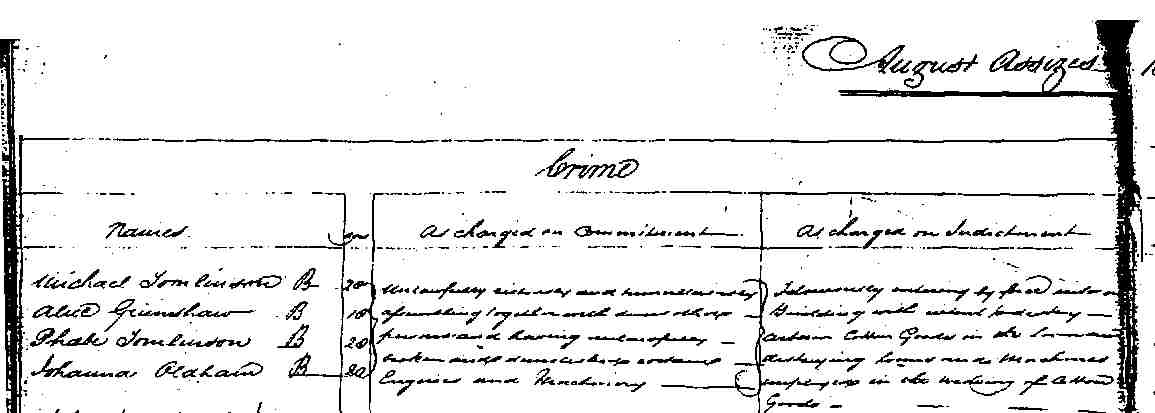 August Assizes
Crime
Names As charged on Commitment As charged on Indictment
Michael Tomlinson B 20 Unlawfully riotously and tumultuously Feloniously entering by force into a
Alice Grimshaw B assembling together with divers others Building with intent
Phœbe Tomlinson B 20 persons and having unlawfully Cotton Goods in the Loom and
Johanna Oldham B 20 broken and demolished certain destroying Looms and Machines
Engines and Machinery employed in the making of Cotton
Goods